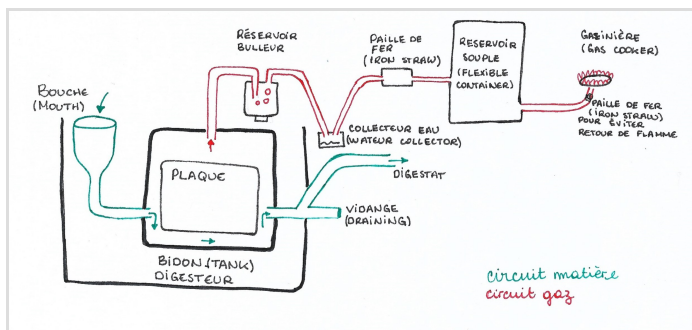 RÉSERVOIR
BULLEUR
PAILLE DE
FER
(IRON STRAW)
RESERVOIR
SOUPLE
(FLEXIBLE
CONTAINER)
GAZINIÈRE
(GAS COOKER)
BOUCHE
(MOUTH)
PAILLE DE FER
(IRON STRAW)
POUR ÉVITER
RETOUR DE FLAMME
COLLECTEUR EAU
(WATEUR COLLECTOR)
PLAQUE
DIGESTAT
VIDANGE
(DRAINING)
BIDON (TANK)
DIGESTEUR
circuit matière
circuit gaz